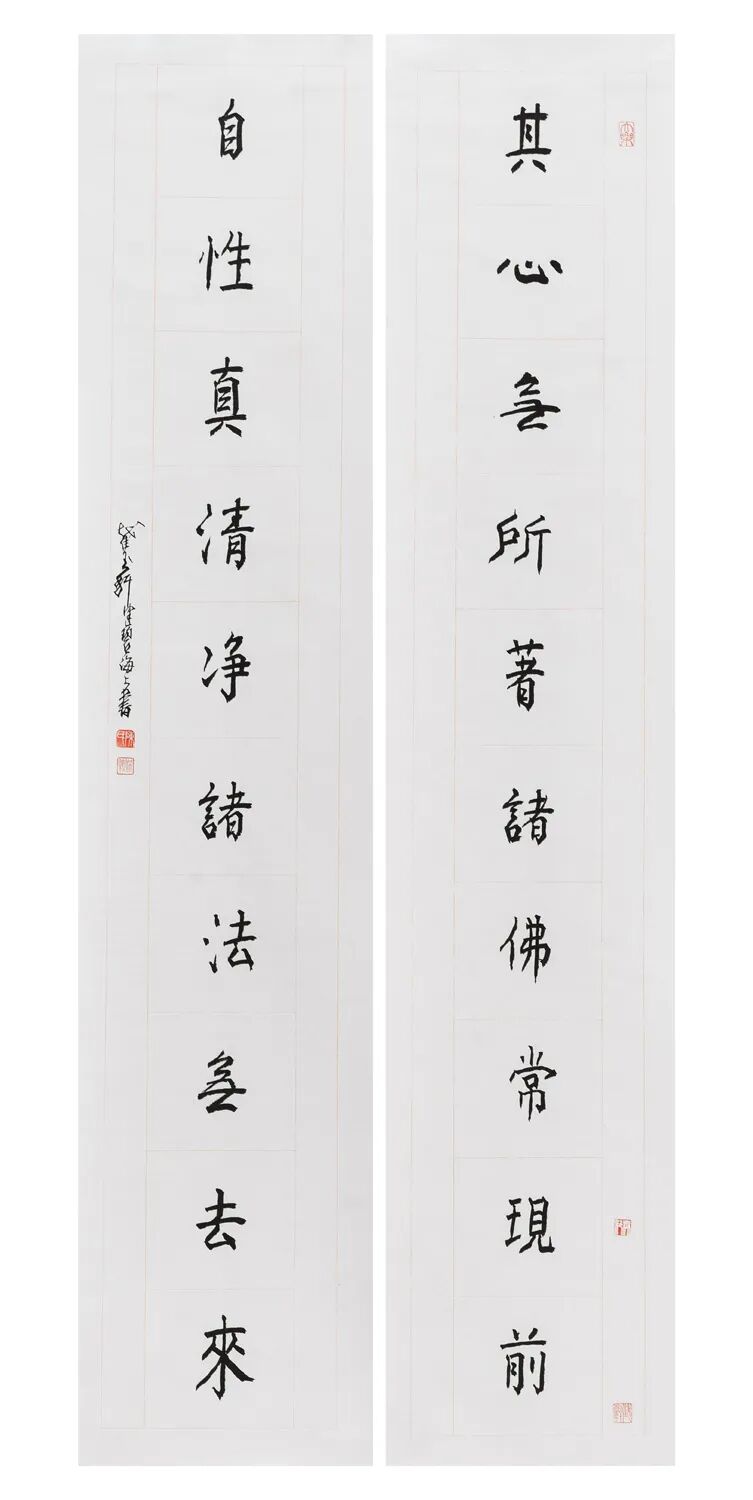 其心無所著諸佛常現前
自性真清净諸法無去來